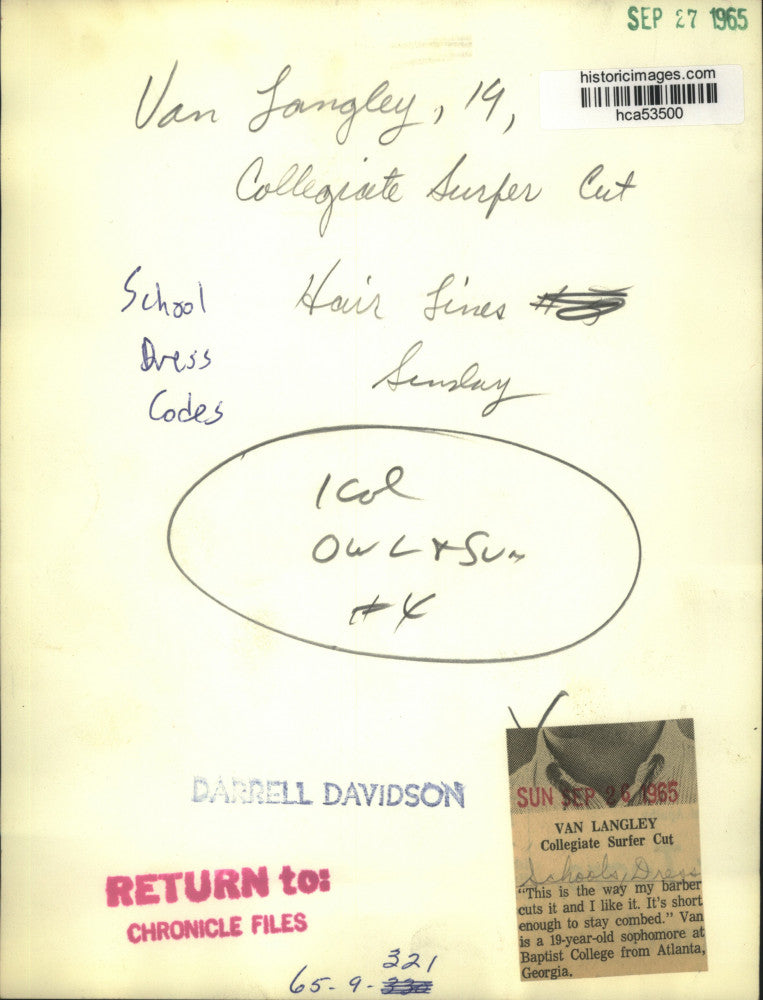 SEP 27 1965
historicimages.com
hca53500
Van Langley, 19,
Collegiate Surfer Cut
School
Dress
Codes
Hair Lines
Sunday
1 Col
OWL + Sun
#4
DARRELL DAVIDSON
RETURN to:
CHRONICLE FILES
65-9-321
SUN SEP 26 1965
VAN LANGLEY
Collegiate Surfer Cut
Schools, Dress
"This is the way my barber
cuts it and I like it. It's short
enough to stay combed." Van
is a 19-year-old sophomore at
Baptist College from Atlanta,
Georgia.